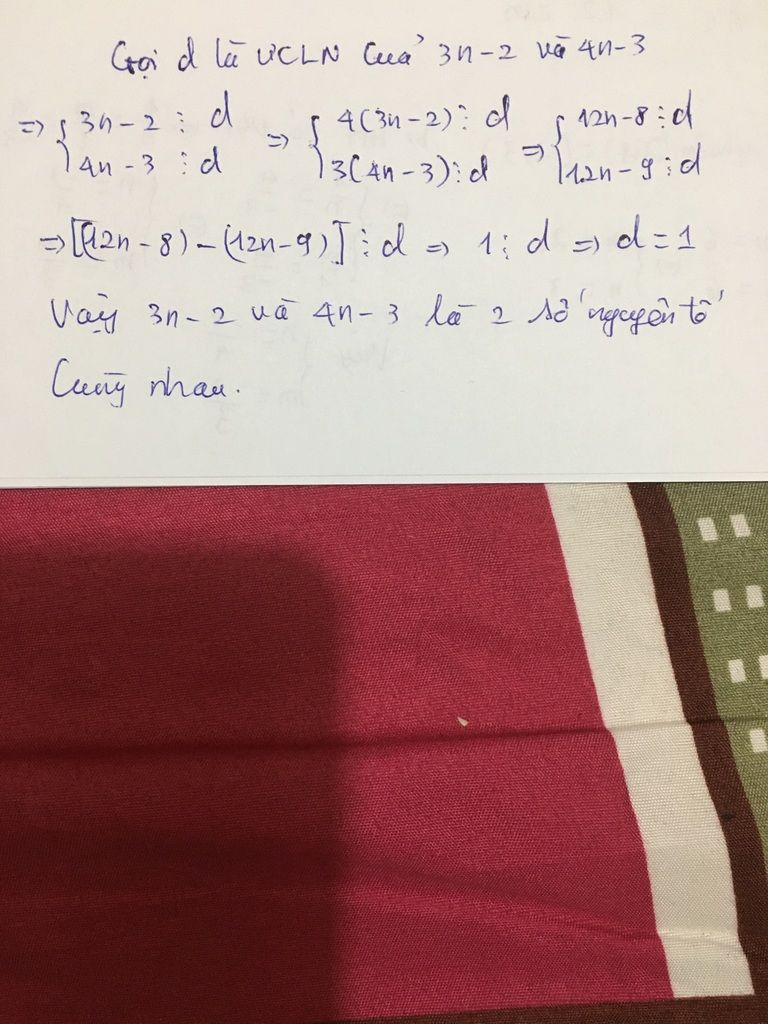 Gọi d là ƯCLN Của 3n-2 và 4n-3
=> { 3n-2 ⋮ d => { 4(3n-2) ⋮ d => { 12n-8 ⋮ d
4n-3 ⋮ d 3(4n-3) ⋮ d 12n-9 ⋮ d
=> [(12n-8)-(12n-9)] ⋮ d => 1 ⋮ d => d = 1
Vậy 3n-2 và 4n-3 là 2 số nguyên tố
Cùng nhau.